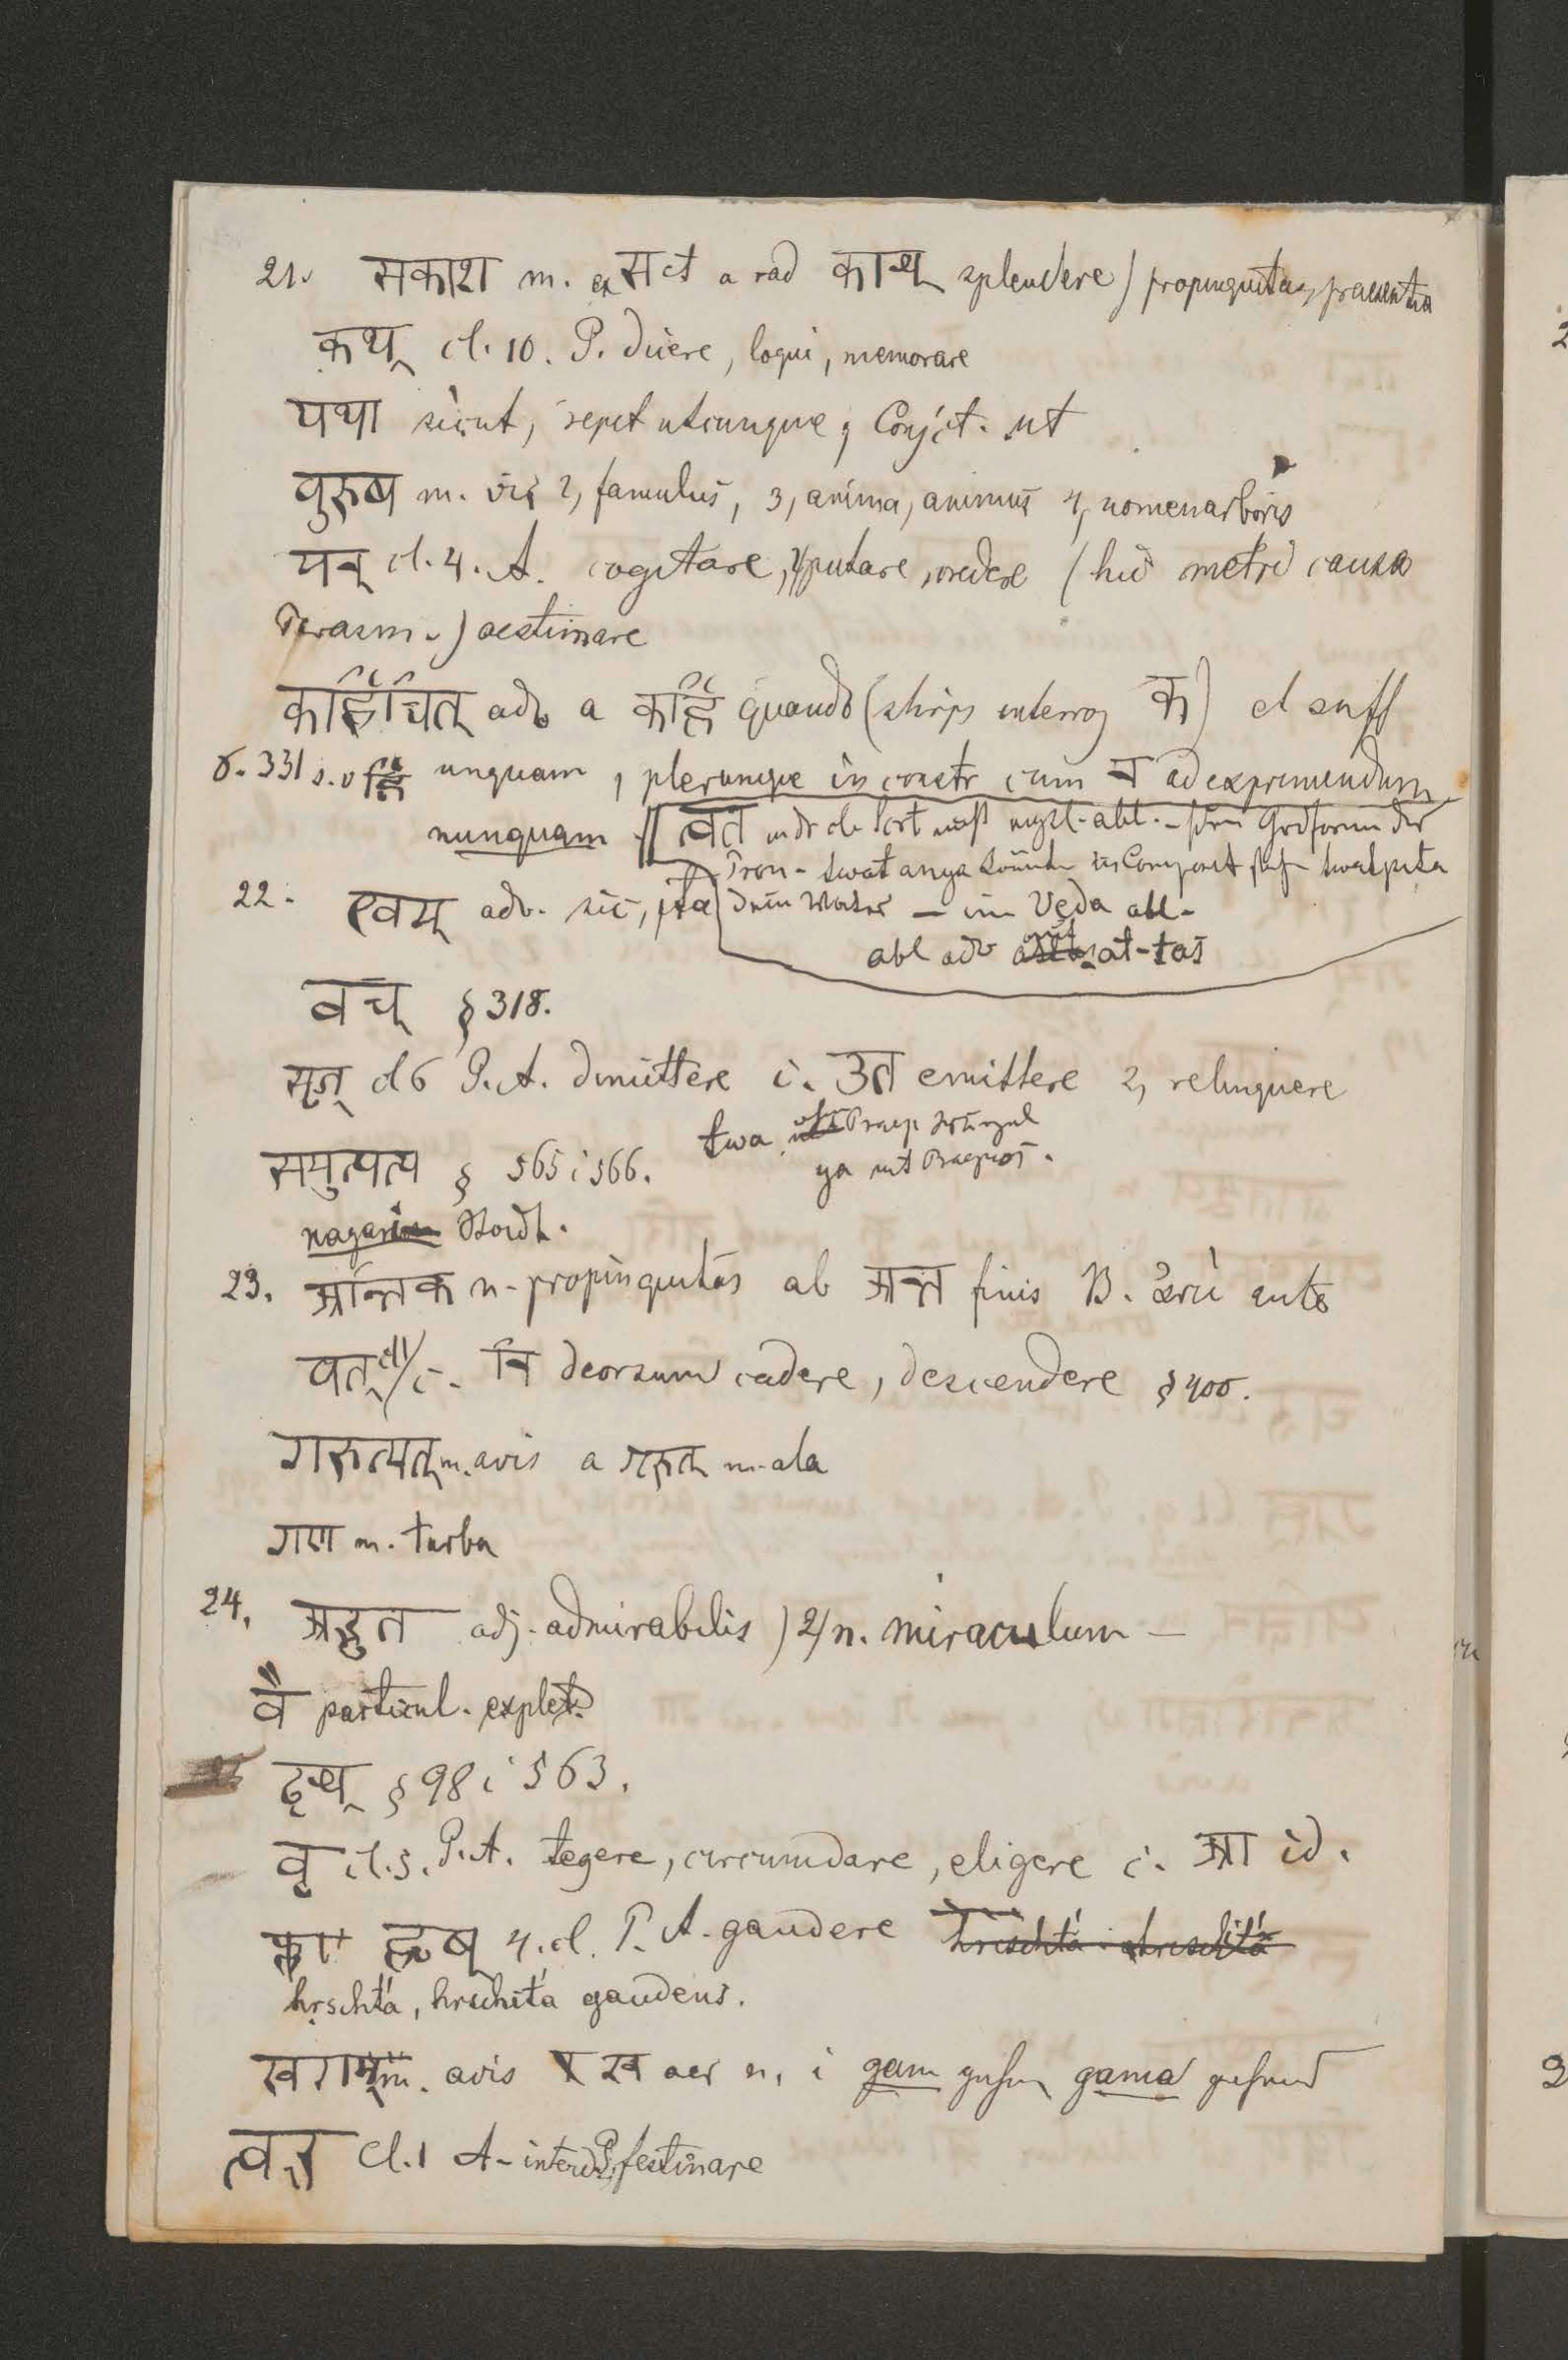 21. सकाश m. ex स et a rad काश् splendere) propinquitas, praesentia
कथ् cl. 10. P. dicere, loqui, memorare
यथा sicut, repet utcunque, Conjct. ut
पुरुष m. vir 2, famulus, 3, anima, animus 4, nomen arboris
मन् cl. 4. A. cogitare, 2) putare, credere (hic metri causa
Parasm.) aestimare
कर्हिचित् adv a कर्हि quando (stirps interrog क) et suff
s. v र्हि unquam, plerumque in constr cum न ad exprimendum
nunquam त्वत् abl. der
Pron - twat anya Composit twatpita
22. एवम् adv. sic, ita dein im Veda abl-
abl adv at-tas
वच् § 318.
सृज् cl 6 P. A. dimittere c. उत् emittere 2, relinquere
twa Praep
समुत्पत्य § 565 i 566. ya mit
nagarim Stadt.
23. अन्तिक n. propinquitas ab अन्त finis B. ἀντί ante
पत् cl 1 c. नि deorsum cadere, descendere § 400.
गरुत्मत् m. avis a गरुत् m. ala
गण m. turba
24. अद्भुत adj. admirabilis) 2) n. miraculum —
वै particul. explet.
दृश् § 98 i 563.
वृ cl. 5. P. A. tegere, circumdare, eligere c. आ id.
हृष् 4. cl. P. A. gaudere hrischtá hrischitá
hrschtá, hrschitá gaudens.
खगम m. avis ख aer n, i gam gehen gama gehend
त्वर् Cl. 1 A - interd P. festinare